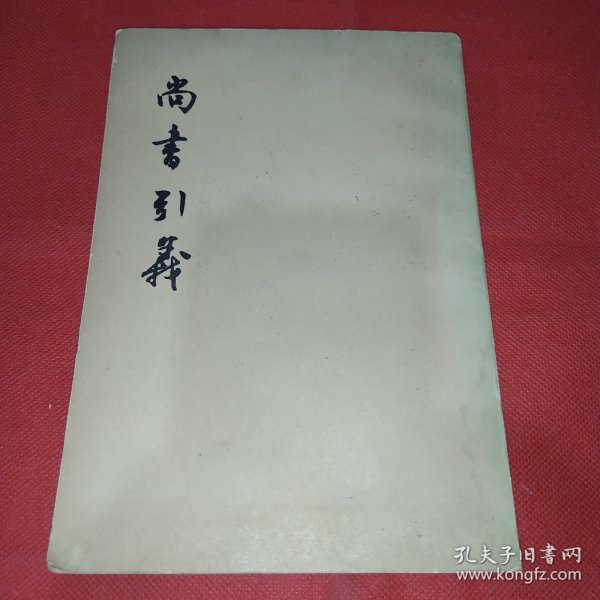 尚書引義
孔夫子旧书网
www.kongfz.com